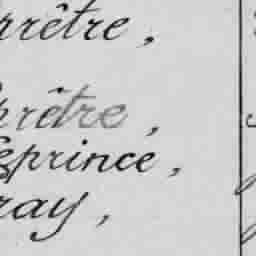 prêtre,
prêtre,
Leprince,
ray,